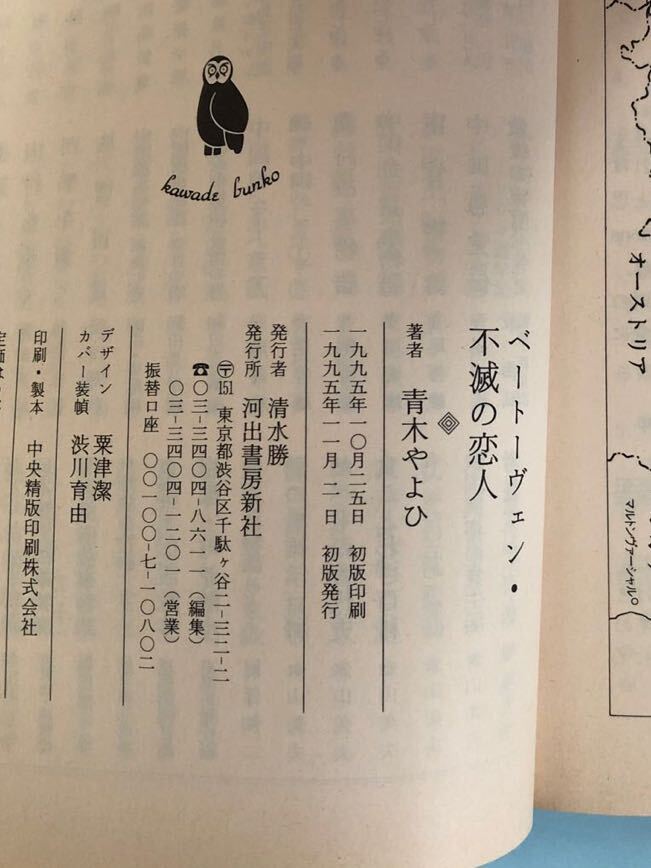 kawade bunko
ベートーヴェン・
不滅の恋人
著者 青木やよひ
一九九五年一〇月二五日 初版印刷
一九九五年一一月 二 日 初版発行
発行者 清水勝
発行所 河出書房新社
〒151 東京都渋谷区千駄ヶ谷二-三二-二
☎〇三-三四〇四-八六一一(編集)
〇三-三四〇四-一二〇一(営業)
振替口座 〇〇一〇〇-七-一〇八〇二
デザイン 粟津潔
カバー装幀 渋川育由
印刷・製本 中央精版印刷株式会社
定価は
オーストリア
マルトンヴァーシャル